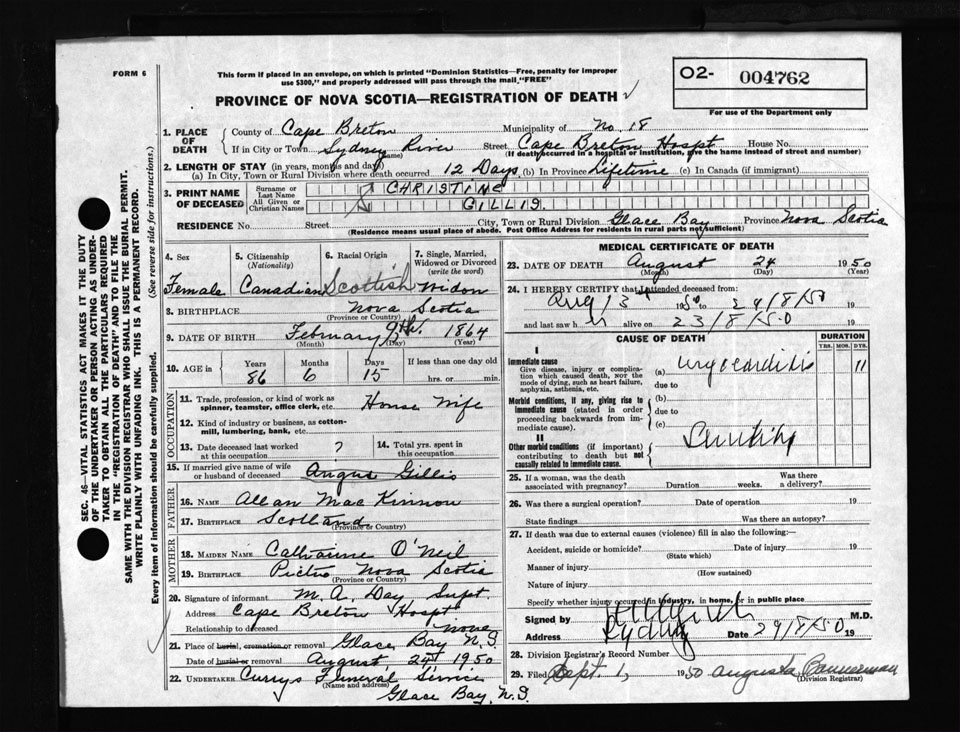 FORM 6
This form if placed in an envelope, on which is printed "Dominion Statistics—Free, penalty for improper
use $300," and properly addressed will pass through the mail, "FREE"
O2- 004762
For use of the Department only
PROVINCE OF NOVA SCOTIA—REGISTRATION OF DEATH
1. PLACE OF DEATH County of Cape Breton Municipality of No. 18
If in City or Town Sydney River (Name) Street Cape Breton Hospt House No.
(If death occurred in a hospital or institution, give the name instead of street and number)
2. LENGTH OF STAY (in years, months and days)
(a) In City, Town or Rural Division where death occurred 12 Days (b) In Province Lifetime (c) In Canada (if immigrant)
3. PRINT NAME OF DECEASED Surname or Last Name CHRISTINE
All Given or Christian Names GILLIS.
RESIDENCE No. Street City, Town or Rural Division Glace Bay Province Nova Scotia
(Residence means usual place of abode. Post Office Address for residents in rural parts not sufficient)
4. Sex Female
5. Citizenship (Nationality) Canadian
6. Racial Origin Scottish
7. Single, Married, Widowed or Divorced (write the word) Widow
8. BIRTHPLACE Nova Scotia
(Province or Country)
9. DATE OF BIRTH February 9th. 1864
(Month) (Day) (Year)
10. AGE in Years 86 Months 6 Days 15 If less than one day old
hrs. or min.
OCCUPATION
11. Trade, profession, or kind of work as spinner, teamster, office clerk, etc. House Wife
12. Kind of industry or business, as cotton-mill, lumbering, bank, etc.
13. Date deceased last worked at this occupation ?
14. Total yrs. spent in this occupation
15. If married give name of wife or husband of deceased Angus Gillis
FATHER
16. NAME Allan Mac Kinnon
17. BIRTHPLACE Scotland
(Province or Country)
MOTHER
18. MAIDEN NAME Catharine O'Neil
19. BIRTHPLACE Pictou Nova Scotia
(Province or Country)
20. Signature of informant M. A. Day Supt.
Address Cape Breton Hospt
Relationship to deceased none
21. Place of burial, cremation or removal Glace Bay N.S
Date of burial or removal August 24th 1950
22. UNDERTAKER Currys Funeral Service
(Name and address)
Glace Bay, N.S.
MEDICAL CERTIFICATE OF DEATH
23. DATE OF DEATH August 24 1950
(Month) (Day) (Year)
24. I HEREBY CERTIFY that I attended deceased from:
Aug 13 1950 to 24/8/50
and last saw her alive on 23/8/50 19
CAUSE OF DEATH
DURATION
YRS. MOS. DYS.
I
Immediate cause
Give disease, injury or complication which caused death, nor the mode of dying, such as heart failure, asphyxia, asthenia, etc.
(a) Myocarditis 11
due to
Morbid conditions, if any, giving rise to immediate cause (stated in order proceeding backwards from immediate cause).
(b)
due to
(c)
II
Other morbid conditions (if important) contributing to death but not causally related to immediate cause. Senility
25. If a woman, was the death associated with pregnancy? Duration weeks. Was there a delivery?
26. Was there a surgical operation? Date of operation 19
State findings Was there an autopsy?
27. If death was due to external causes (violence) fill in also the following:—
Accident, suicide or homicide? Date of injury 19
(State which)
Manner of injury
(How sustained)
Nature of injury
Specify whether injury occurred in industry, in home, or in public place
Signed by M.D.
Address Sydney Date 29/8/50 19
28. Division Registrar's Record Number
29. Filed Sept. 1, 1950 Augusta Bannerman
(Division Registrar)
SEC. 46—VITAL STATISTICS ACT MAKES IT THE DUTY
OF THE UNDERTAKER OR PERSON ACTING AS UNDER-
TAKER TO OBTAIN ALL THE PARTICULARS REQUIRED
IN THE "REGISTRATION OF DEATH" AND TO FILE THE
SAME WITH THE DIVISION REGISTRAR WHO SHALL ISSUE THE BURIAL PERMIT.
WRITE PLAINLY WITH UNFADING INK. THIS IS A PERMANENT RECORD.
Every item of information should be carefully supplied. (See reverse side for instructions.)